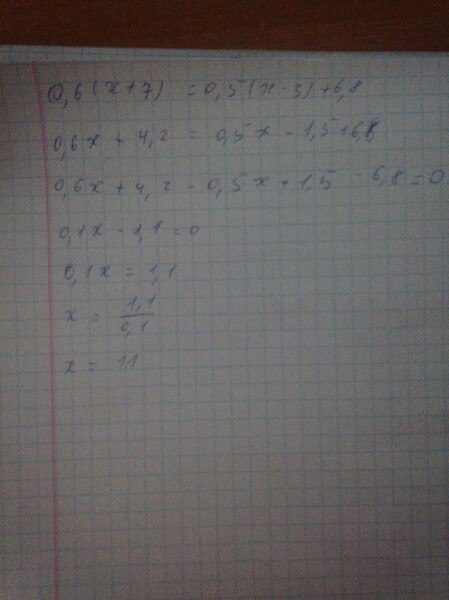 0,6(x+7) = 0,5(x-3)+6,8
0,6x + 4,2 = 0,5x - 1,5+6,8
0,6x + 4,2 - 0,5x + 1,5 - 6,8 = 0
0,1x - 1,1 = 0
0,1x = 1,1
x = 1,1/0,1
x = 11